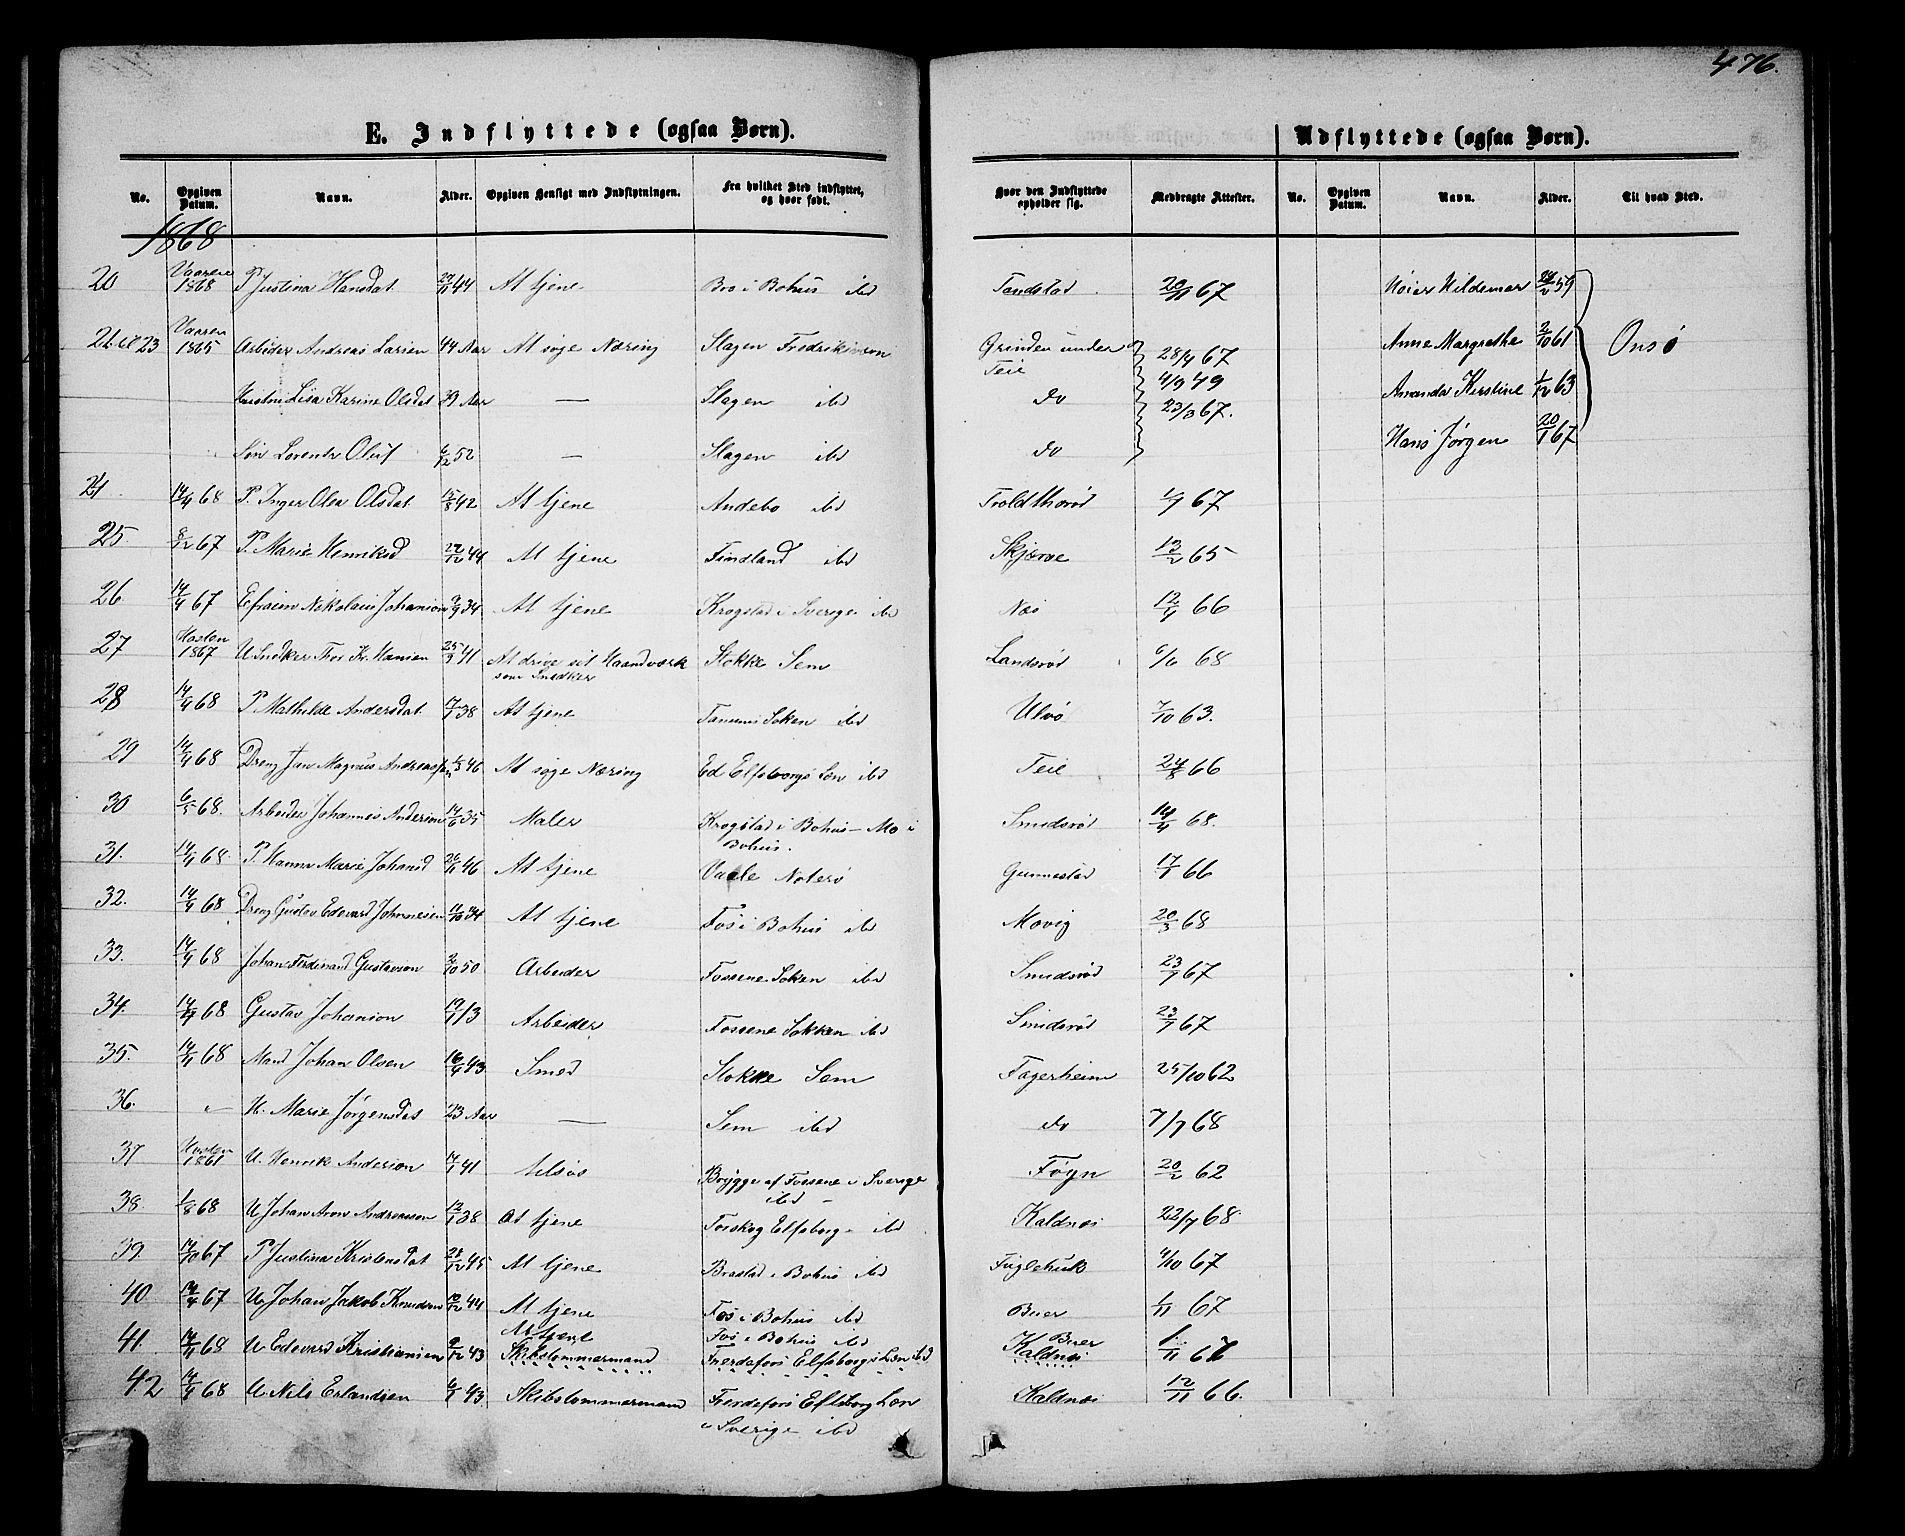 476.
E. Indflyttede (ogsaa Børn).
Udflyttede (ogsaa Børn).
No. Opgiven Datum. Navn. Alder. Opgiven Hensigt med Indflytningen. Fra hvilket Sted indflyttet, og hvor født. Hvor den Indflyttede opholder sig. Medbragte Attester. No. Opgiven Datum. Navn. Alder. Til hvad Sted.
1868
20 Vaaren 1868 P. Justina Hansdat. 29/11 44 At tjene Bro i Bohus ibd Tandstad 20/11 67
21 til 23 Vaaren 1865 Arbeider Andreas Larsen 44 Aar At søge Næring Slagen Fredriksværn Grinden under Teie 28/4 67
4/9 49
Hustru Lisa Karine Olsdat 39 Aar — Slagen ibd do 23/3 67.
Søn Lorents Oluf 6/12 52 — Slagen ibd do
24 14/4 68 P. Inger Olea Olsdat 15/8 42 At tjene Andebo ibd Troldthorød 1/9 67
25. 8/12 67 P. Marie Henriksd 29/12 44 At tjene Findland ibd Skjerve 13/2 65
26 14/4 67 Efraim Nikolaus Johanson 9/9 34 At tjene Krogstad i Sverige ibd Næs 12/4 66
27 Høsten 1867 U. Snedker Thor Kr. Hansen 25/9 41 At drive sit Haandværk som Snedker Stokke Sem Landsrød 6/6 68
28 14/4 68 P. Mathilde Andersdat. 17/1 38 At tjene Tanums Soken ibd Ulvø 7/10 63.
29 14/4 68 Dreng Jan Magnus Andreassen 1/3 46 At søge Næring Ed Elfsborgs Len ibd Teie 24/8 66
30 6/5 68. Arbeider Johannes Andersen 14/6 35 Maler Krogstad i Bohus – Mo i Bohus. Smidsrød 14/4 68.
31. 14/4 68 P. Hanna Marie Johansd 26/11 46 At tjene Vaale Noterø Gunnestad 17/1 66
32. 14/4 68 Dreng Gustav Edevard Johannesen 11/10 34 At tjene Fos i Bohus ibd Movig 20/3 68
33. 14/4 68 Johan Ferdinand Gustavson 2/10 50 Arbeider Fossene Soken ibd Smidsrød 23/7 67
34. 14/4 68 Gustav Johanson 19/1 13 Arbeider Fossene Sokken ibd Smidsrød 23/7 67
35. 14/4 68 Mand Johan Olsen 16/9 43 Smed Stokke Sem Fagerheim 25/10 62
36. " H. Marie Jørgensdat 23 Aar — Sem ibd do 7/7 68
37 Høsten 1861 U. Henrik Anderson 14/1 41 tilsøs Brygge af Fossene i Sverige ibd – Føyn 20/2 62
38. 1/8 68 U Johan Aron Andreassen 12/1 38 At tjene Torskog Elfsborgs ibd Kaldnæs 22/7 68
39 14/10 67 P Justina Kristensdat 28/12 45 At tjene Brastad i Bohus ibd Fuglehuk 4/10 67
40. 14/4 67 U. Johan Jakob Knudsen 10/12 44 At tjene Fos i Bohus ibd Buer 1/11 67
At tjene Fos i Bohus ibd Buer
41. 14/4 68 U. Edevard Kristiansen 9/12 43 Skibstømmermand Frerdefors Elfsborgs Len ibd Kaldnæs 1/11 67
42 14/4 68 U. Nils Erlandsen 6/1 43 Skibstømmermand Frerdefors Elfsborg Len i Sverige ibd Kaldnæs 12/11 66.
Hildemar 59
Anne Margrethe 2/10 61
Onsø
Amanda Kirstine 1/12 63
Hans Jørgen 20/1 67